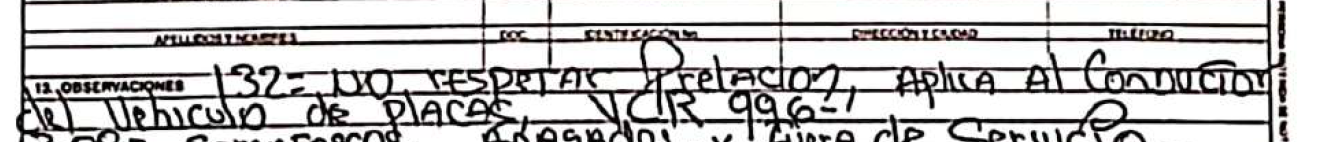 APELLIDOS Y NOMBRES DOC IDENTIFICACION No DIRECCION Y CIUDAD TELEFONO
12. OBSERVACIONES 132= NO rESPETAR Prelacion, Aplica Al Conductor
del Vehiculo de PlACAS, VCR 996-
Apagados y fuera de Servicio